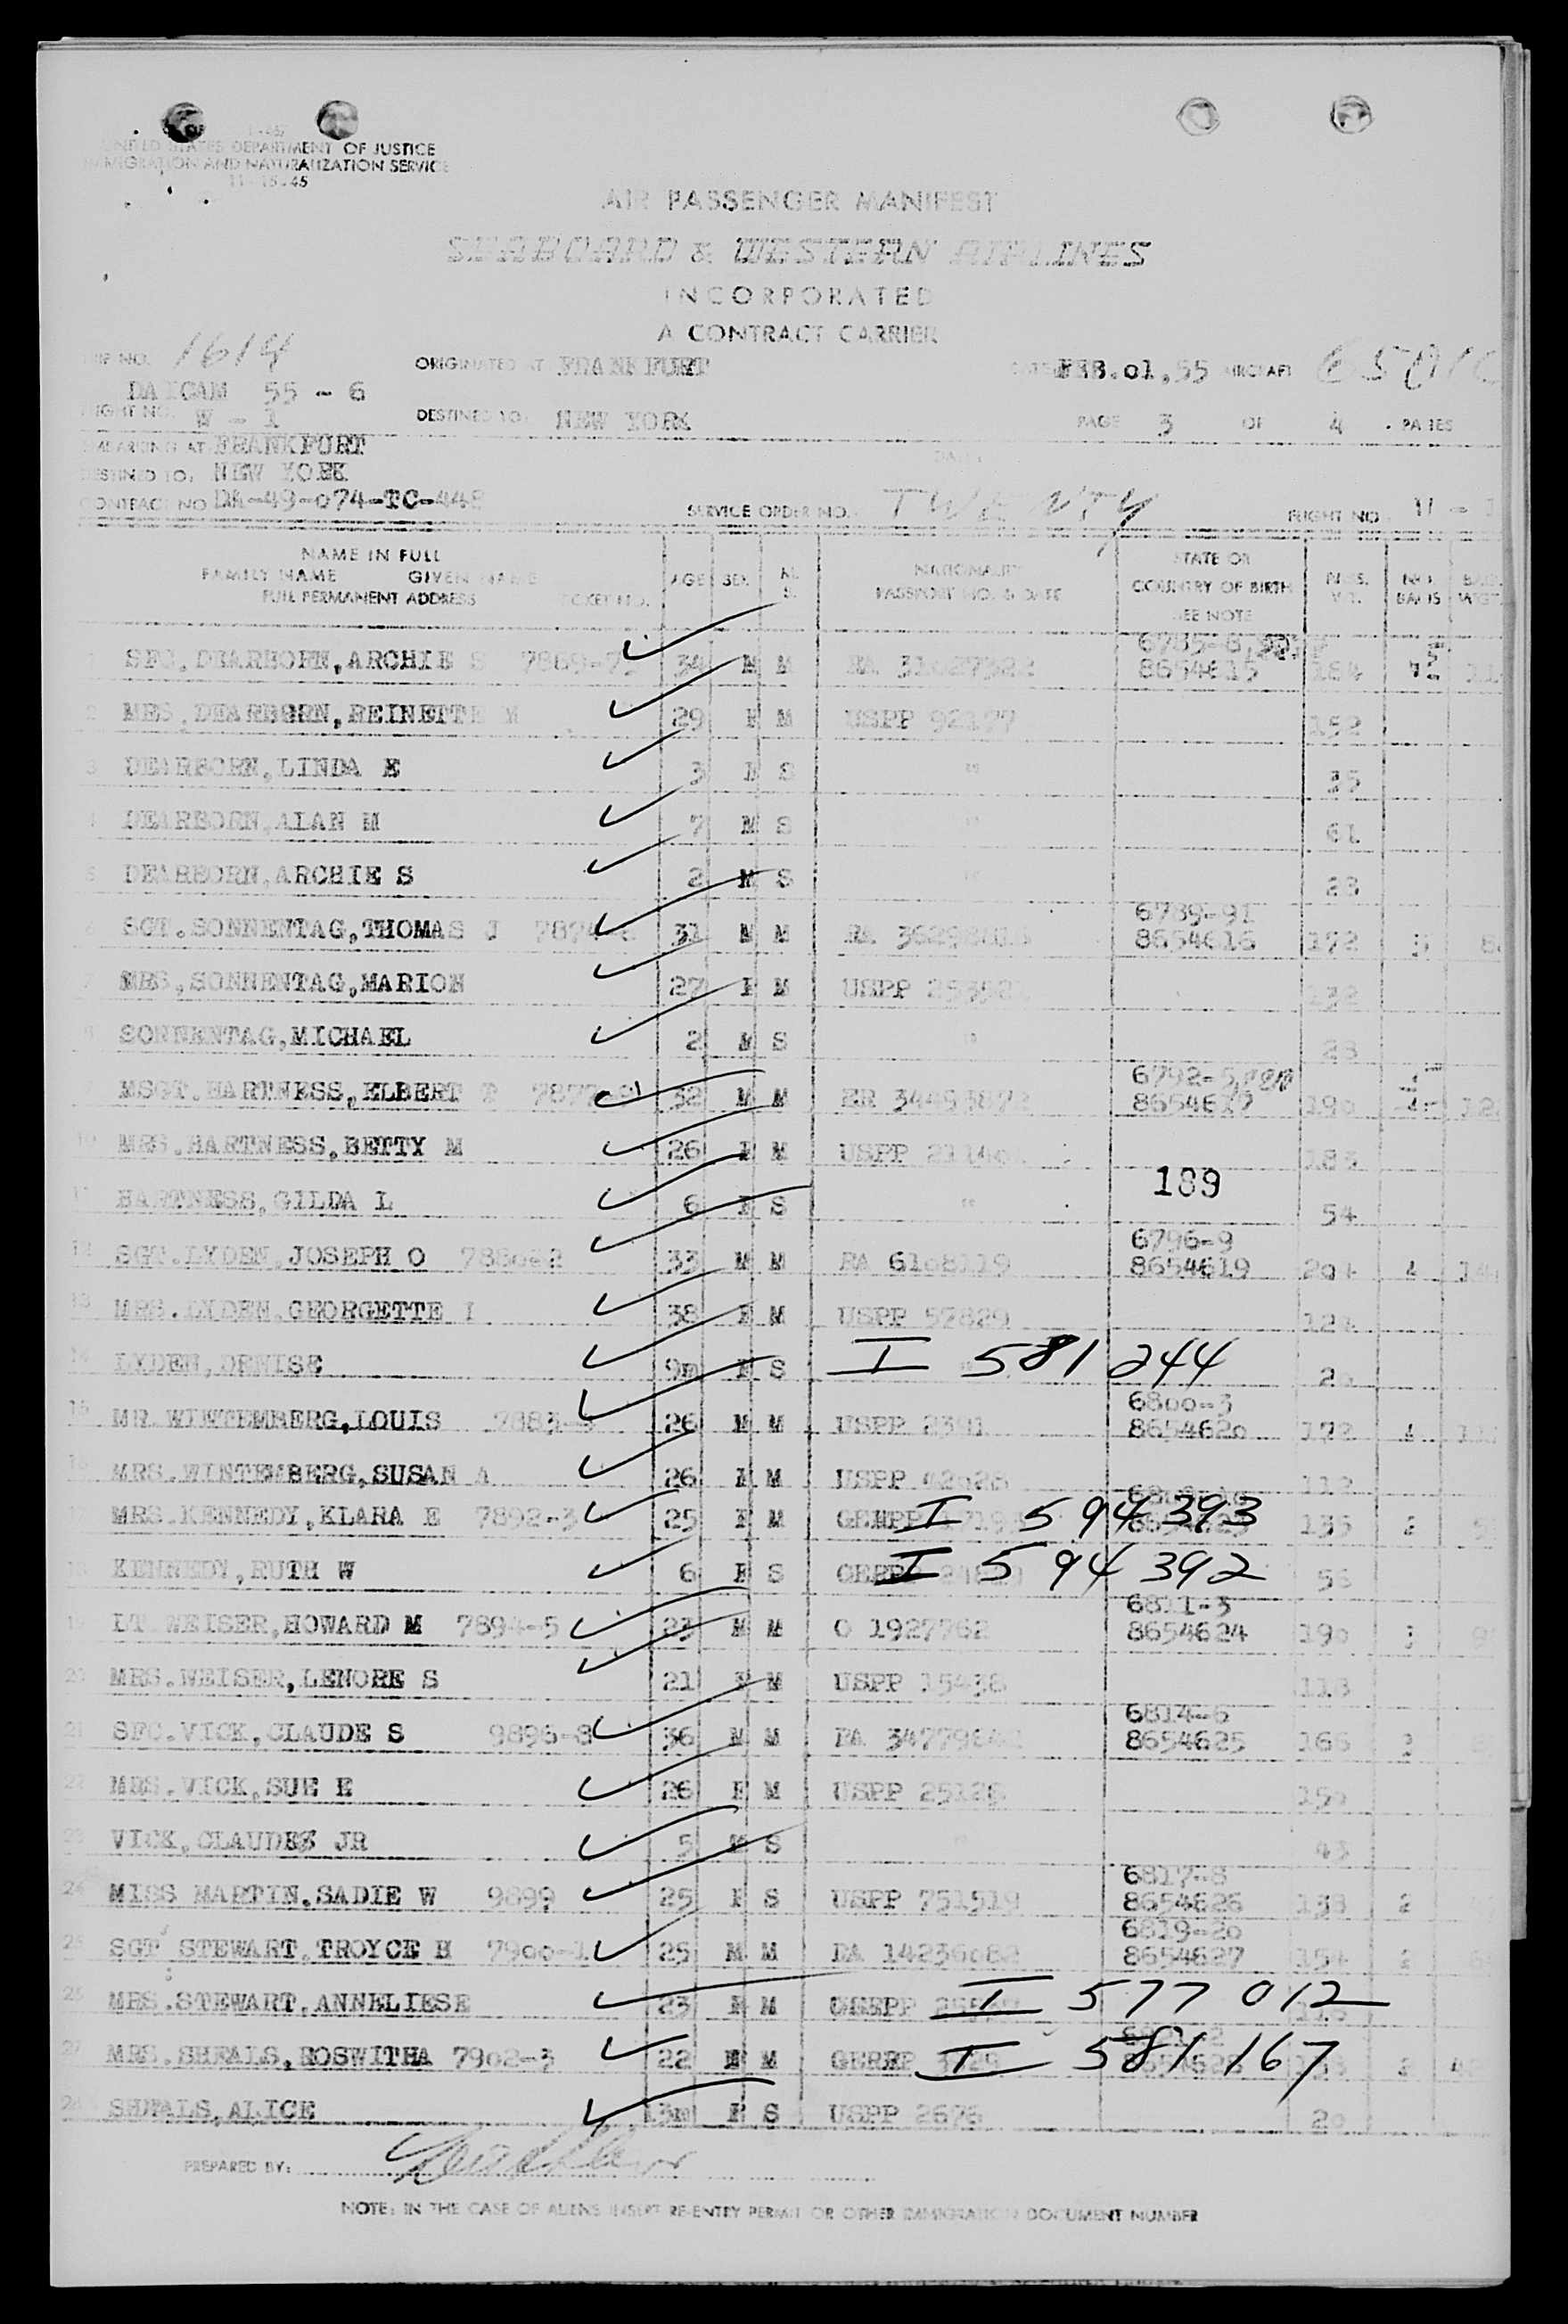 UNITED STATES DEPARTMENT OF JUSTICE
IMMIGRATION AND NATURALIZATION SERVICE
11-15-45
AIR PASSENGER MANIFEST
SEABOARD & WESTERN AIRLINES
INCORPORATED
A CONTRACT CARRIER
NO. 1614 ORIGINATED AT FRANKFURT FEB.01,55 AIRCRAFT
55 - 6
FLIGHT NO. W - 1 DESTINED TO: NEW YORK PAGE 3 OF 4 PAGES
EMBARKING AT FRANKFURT
DESTINED TO: NEW YORK
CONTRACT NO DA-49-074-TC-448 SERVICE ORDER NO. TWENTY FLIGHT NO.
NAME IN FULL STATE OR
FAMILY NAME GIVEN NAME AGE SEX M. NATIONALITY COUNTRY OF BIRTH PASS. NO. BAG.
FULL PERMANENT ADDRESS TICKET NO. S. PASSPORT NO. & DATE SEE NOTE WT. BAGS WGT.
1 SFC. DEARBORN, ARCHIE S 34 M M RA 31027322 8654615 184
2 MRS. DEARBORN, REINETTE M 29 F M USPP 92177 152
3 DEARBORN, LINDA E 3 F S " 35
4 DEARBORN, ALAN M 7 M S " 61
5 DEARBORN, ARCHIE S 2 M S " 23
6789-91
6 SGT. SONNENTAG, THOMAS J 31 M M RA 8654616 172
7 MRS. SONNENTAG, MARION 27 F M USPP 132
8 SONNENTAG, MICHAEL 2 M S " 28
9 MSGT. HARTNESS, ELBERT 32 M M 8654617 190
10 MRS. HARTNESS, BETTY M 26 F M USPP 183
189
11 HARTNESS, GILDA L 6 F S " 54
6796-9
12 SGT. LYDEN, JOSEPH O 7880-2 33 M M RA 6108119 8654619 4
13 MRS. LYDEN, GEORGETTE I 38 F M USPP 57829
14 LYDEN, DENISE 9m F S I 581 244
6800-3
15 MR. WINTEMBERG, LOUIS 26 M M USPP 2391 8654620 172 4
16 MRS. WINTEMBERG, SUSAN A 26 F M USPP 42028 112
17 MRS. KENNEDY, KLARA E 7892-3 25 F M GERPP I 594393 135 2
18 KENNEDY, RUTH W 6 F S GERPP I 594392
6811-3
19 LT WEISER, HOWARD M 7894-5 23 M M O 1927762 8654624 190 3
20 MRS. WEISER, LENORE S 21 F M USPP 15438 118
6814-6
21 SFC. VICK, CLAUDE S 9896-8 36 M M RA 8654625 3
22 MRS. VICK, SUE E 26 F M USPP 150
23 VICK, CLAUDES JR 5 M S " 43
6817-8
24 MISS MARTIN, SADIE W 9899 25 F S USPP 751519 8654626 138 2
6819-20
25 SGT STEWART, TROYCE H 7900-1 25 M M RA 14236082 8654627 154 2
26 MRS. STEWART, ANNELIESE 23 F M I 577 012
27 MRS. SHEALS, ROSWITHA 7902-3 22 F M GERPP I 581 167
28 SHEALS, ALICE F S USPP 2676 20
PREPARED BY:
NOTE: IN THE CASE OF ALIENS INSERT RE-ENTRY PERMIT OR OTHER IMMIGRATION DOCUMENT NUMBER